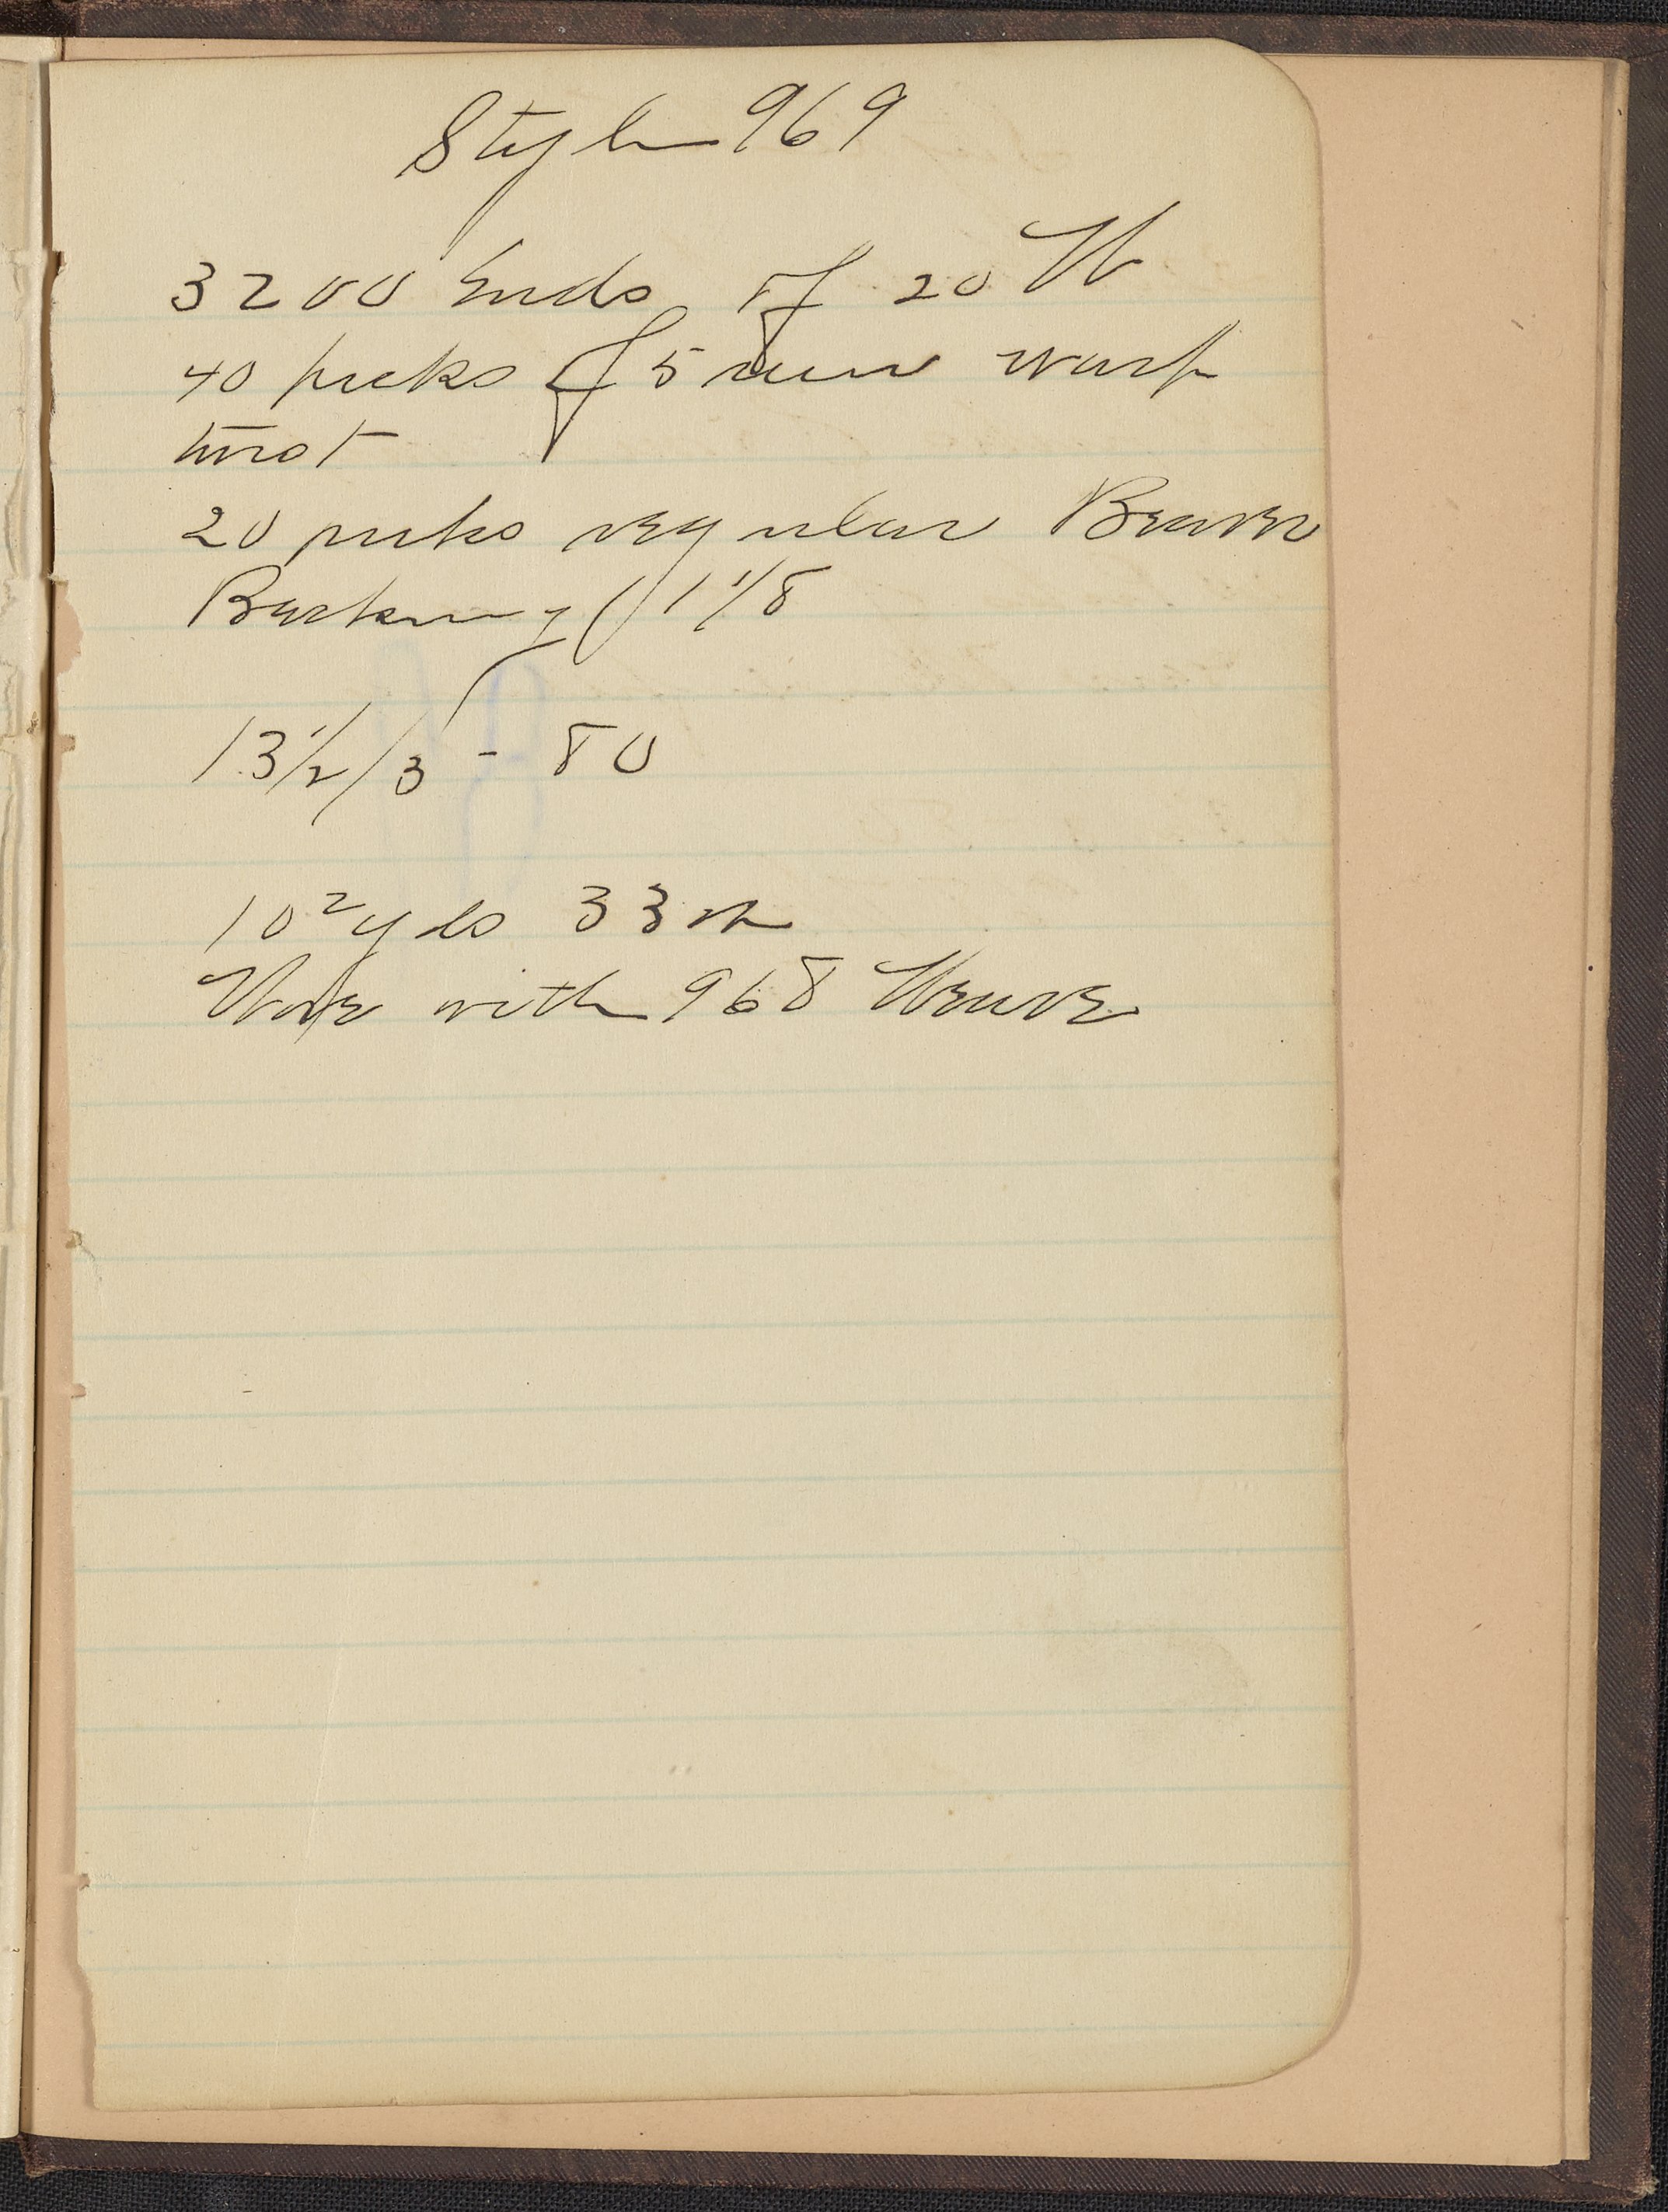 Style 969
3200 Ends of 20 W
40 picks of 5 run warp
twist
20 picks regular Beaver
Backing (1 1/8
13 1/2/3 - 80
10² yds 33
Wove with 968 Weave